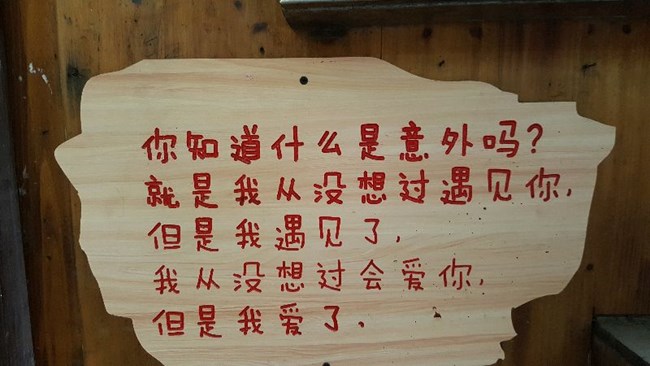 你知道什么是意外吗?
就是我从没想过遇见你,
但是我遇见了,
我从没想过会爱你,
但是我爱了,